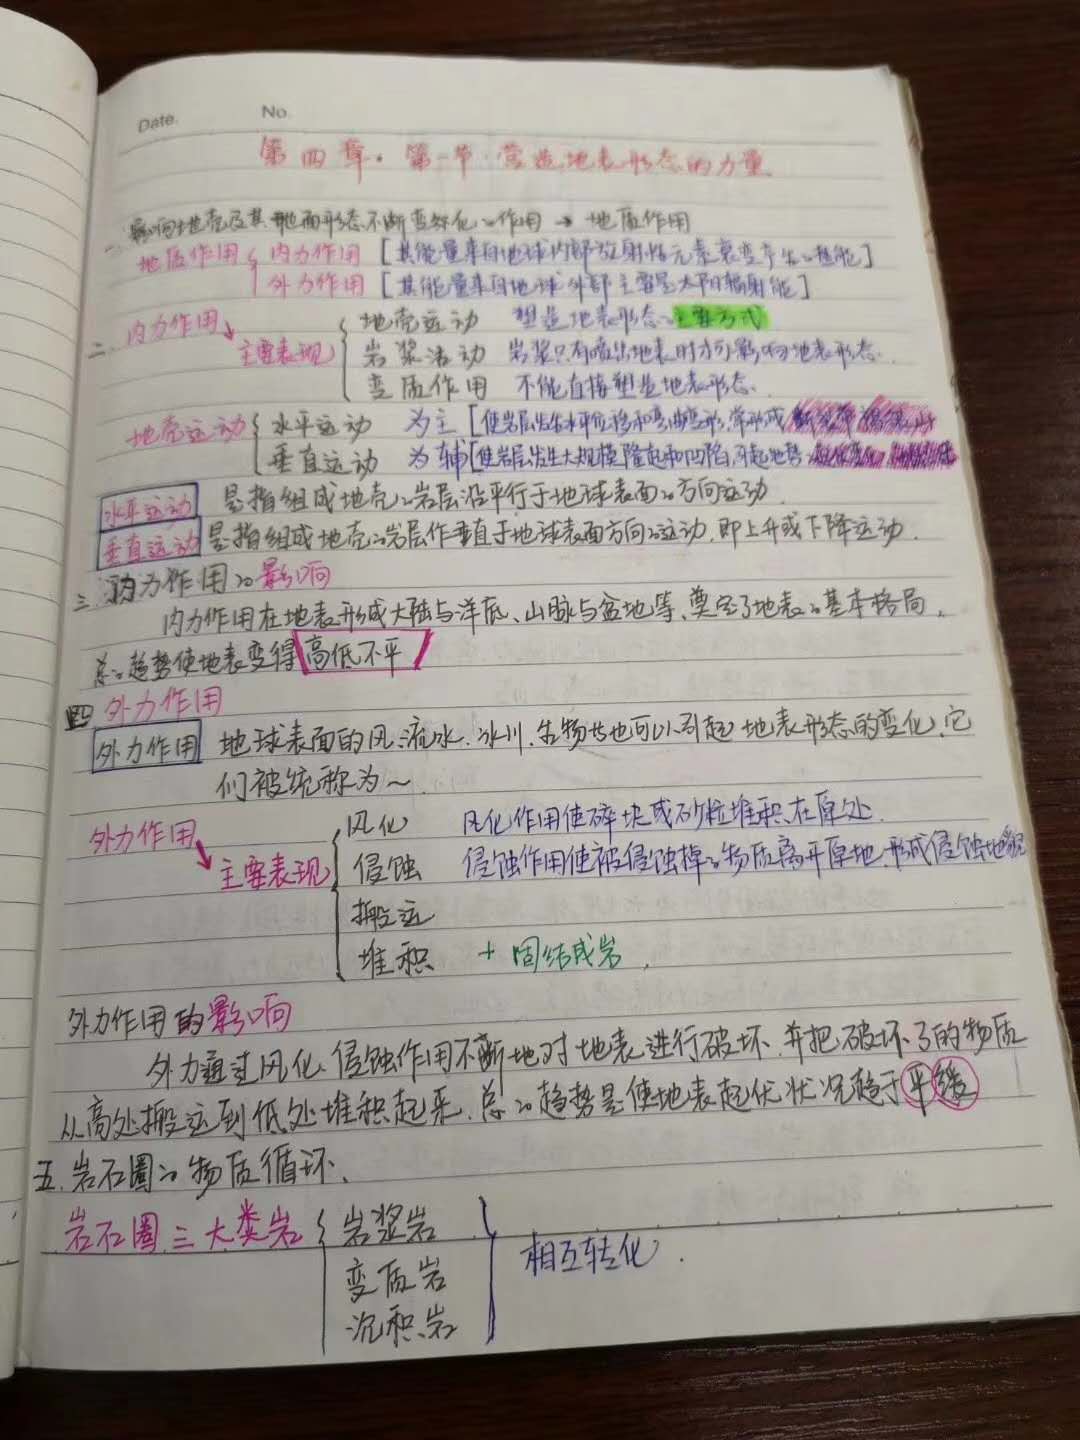 Date.
No.
第四章·第一节·营造地表形态的力量
一、影响地壳及其地面形态不断变化的作用 → 地质作用
地质作用 { 内力作用 [其能量来自地球内部放射性元素衰变产生的热能]
外力作用 [其能量来自地球外部主要是太阳辐射能]
二、内力作用 主要表现 { 地壳运动 塑造地表形态的主要方式
岩浆活动 岩浆只有喷出地表时才可影响地表形态.
变质作用 不能直接塑造地表形态.
地壳运动 { 水平运动 为主 [使岩层发生水平位移和弯曲变形,常形成
垂直运动 为辅 [使岩层发生大规模隆起和凹陷,引起地势
水平运动 是指组成地壳的岩层沿平行于地球表面的方向运动.
垂直运动 是指组成地壳的岩层作垂直于地球表面方向的运动,即上升或下降运动.
三、内力作用的影响
内力作用在地表形成大陆与洋底、山脉与盆地等、奠定了地表的基本格局,
总的趋势使地表变得高低不平
四 外力作用
外力作用 地球表面的风、流水、冰川、生物等也可以引起地表形态的变化,它
们被统称为~.
外力作用 主要表现 { 风化 风化作用使碎块或砂粒堆积在原处.
侵蚀 侵蚀作用使被侵蚀掉的物质离开原地,形成侵蚀地貌
搬运
堆积 + 固结成岩,
外力作用的影响
外力通过风化、侵蚀作用不断地对地表进行破坏,并把破坏了的物质
从高处搬运到低处堆积起来,总的趋势是使地表起伏状况趋于平缓
五、岩石圈的物质循环.
岩石圈三大类岩 { 岩浆岩
变质岩
沉积岩
相互转化.